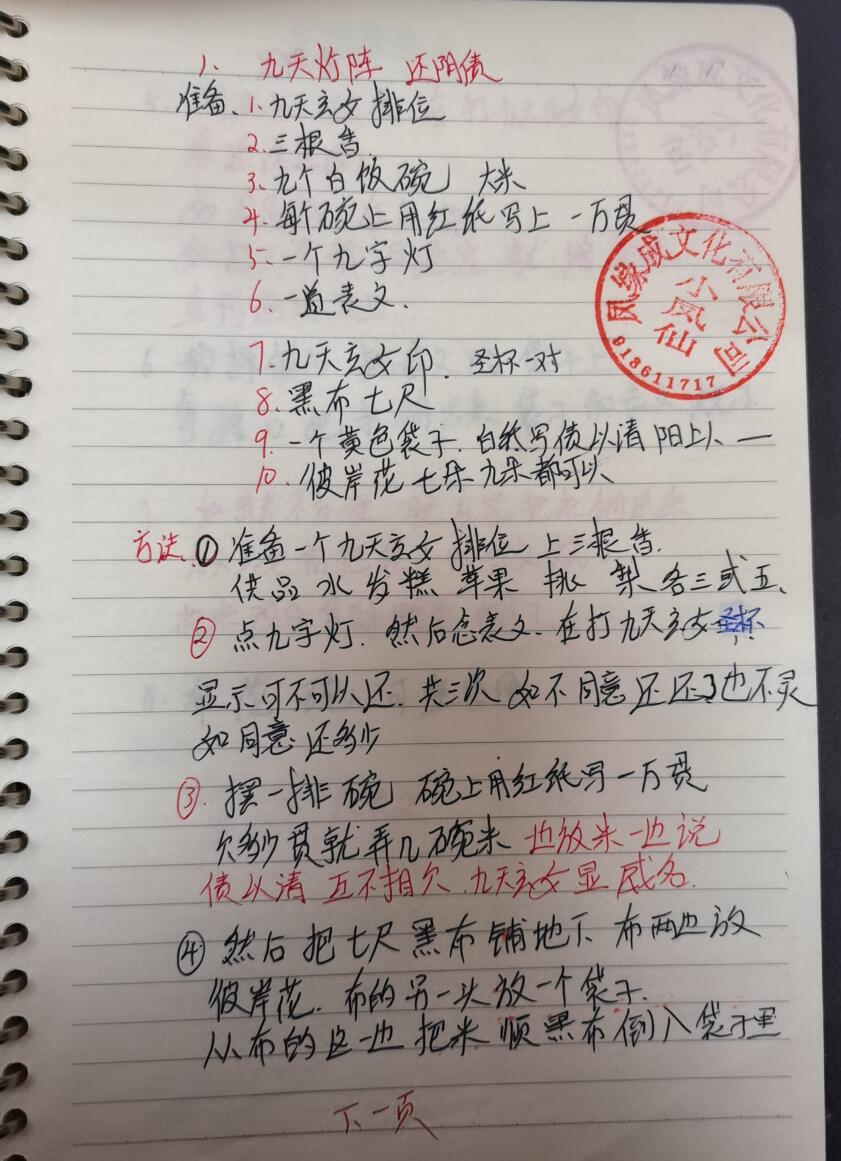 1、九天灯阵 还阴债
准备、1.九天玄女排位
2.三根香.
3.九个白饭碗 大米
4.每个碗上用红纸写上一万贯
5、一个九字灯
6.一道表文.
7.九天玄女印. 圣杯一对
8.黑布七尺
9.一个黄色袋子.自然写债以清阳上人一
10.彼岸花七朵九朵都可以
方法、①准备一个九天玄女排位上三根香.
供品水发糕苹果桃梨各三或五、
②点九字灯.然后念表文.在打九天玄女圣杯
显示可不可以还.共三次如不同意还还了也不灵
如同意还多少
③.摆一排碗 碗上用红纸写一万贯
欠多少贯就弄几碗米边放米一边说
债以清互不相欠.九天玄女显威名.
④然后把七尺黑布铺地下布两边放
彼岸花.布的另一头放一个袋子.
从布的这一边把米顺黑布倒入袋子里
下一页
凤缘成文化有限公司
小凤仙
918611717